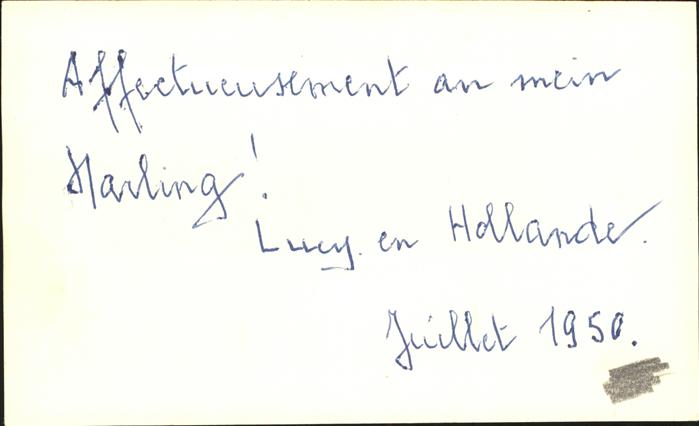 Affectueusement an mein
Harling!
Lucy en Hollande.
Juillet 1950.